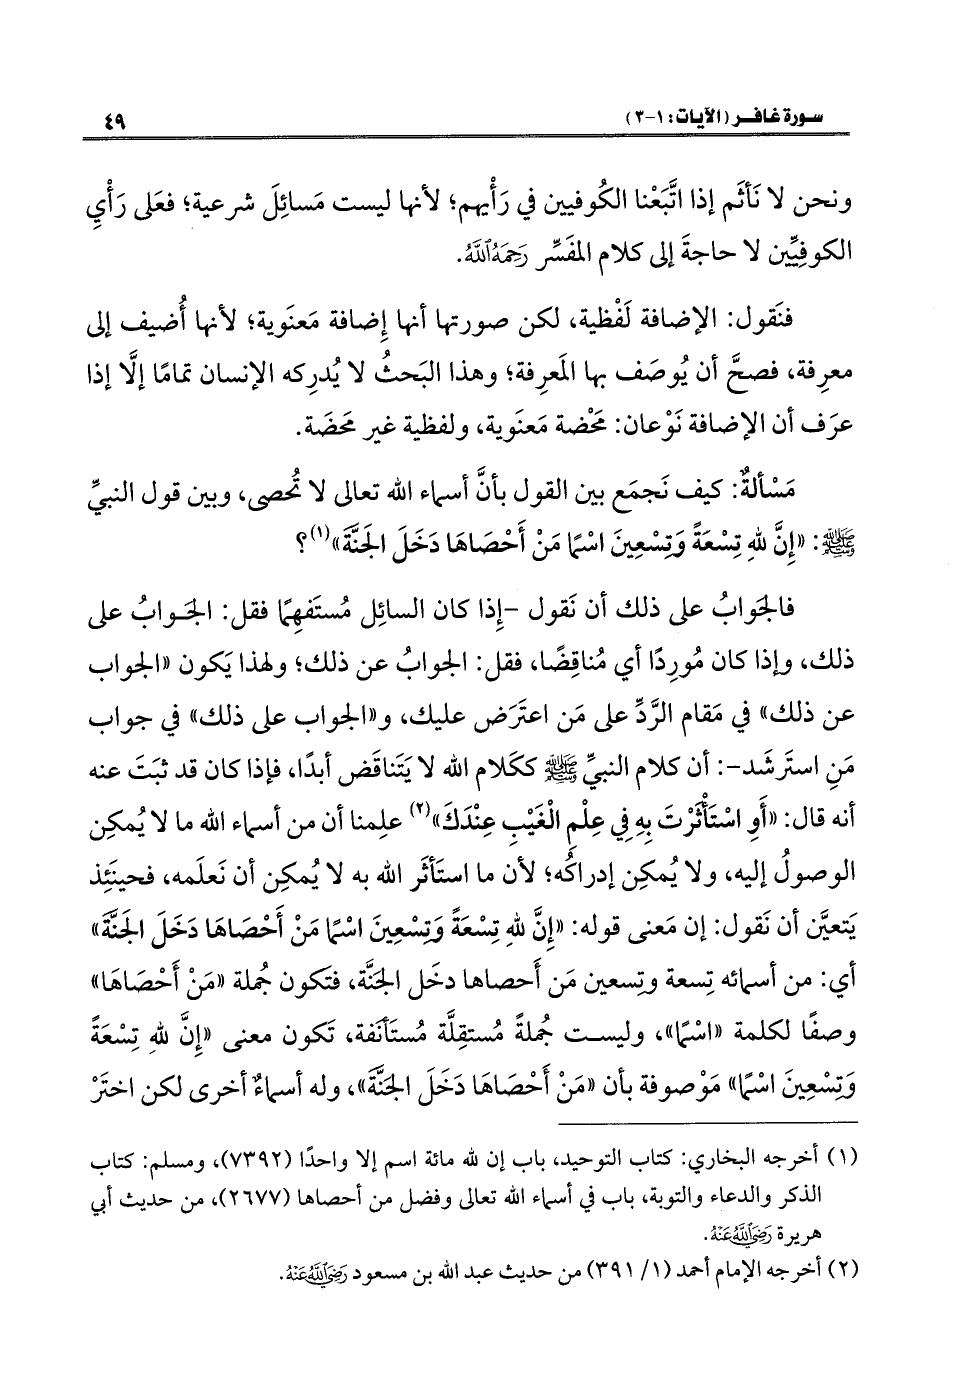 سورة غافر (الآيات: ١-٣) ٤٩
ونحن لا نَأثَم إذا اتَّبَعْنا الكُوفيين في رَأْيِهم؛ لأنها ليست مَسائِلَ شرعية؛ فعَلى رَأْيِ
الكوفِيِّين لا حاجةَ إلى كلام المفَسِّر رَحِمَهُ ٱللَّهُ.
فنَقول: الإضافة لَفْظية، لكن صورتها أنها إِضافة مَعنَوية؛ لأنها أُضيف إلى
معرِفة، فصحَّ أن يُوصَف بها المَعرِفة؛ وهذا البَحثُ لا يُدرِكه الإنسان تمامًا إلَّا إذا
عرَف أن الإضافة نَوْعان: مَحْضة مَعنَوية، ولفظية غير مَحضَة.
مَسْألةٌ: كيف نَجمَع بين القول بأنَّ أسماء الله تعالى لا تُحصى، وبين قول النبيِّ
ﷺ: «إِنَّ للهِ تِسْعَةً وَتِسْعِينَ اسْمًا مَنْ أَحْصَاهَا دَخَلَ الجَنَّةَ»(١)؟
فالجَوابُ على ذلك أن نَقول -إذا كان السائِل مُستَفهِمًا فقل: الجَوابُ على
ذلك، وإذا كان مُورِدًا أي مُناقِضًا، فقل: الجوابُ عن ذلك؛ ولهذا يَكون «الجواب
عن ذلك» في مَقام الرَّدِّ على مَن اعتَرَض عليك، و«الجواب على ذلك» في جواب
مَنِ استَرشَد-: أن كلام النبيِّ ﷺ ككَلام الله لا يَتَناقَض أبدًا، فإذا كان قد ثبَتَ عنه
أنه قال: «أَوِ اسْتَأْثَرْتَ بِهِ فِي عِلْمِ الْغَيْبِ عِنْدَكَ»(٢) علِمنا أن من أسماء الله ما لا يُمكِن
الوصولُ إليه، ولا يُمكِن إدراكُه؛ لأن ما استَأثَر الله به لا يُمكِن أن نَعلَمه، فحينَئِذ
يَتعيَّن أن نَقول: إن مَعنى قوله: «إِنَّ للهِ تِسْعَةً وَتِسْعِينَ اسْمًا مَنْ أَحْصَاهَا دَخَلَ الجَنَّةَ»
أي: من أسمائه تِسعة وتِسعين مَن أَحصاها دخَل الجَنَّة، فتَكون جُملة «مَنْ أَحْصَاهَا»
وصفًا لكلمة «اسْمًا»، وليست جُملةً مُستقِلَّة مُستَأنَفة، تَكون معنى «إِنَّ للهِ تِسْعَةً
وَتِسْعِينَ اسْمًا» مَوْصوفة بأن «مَنْ أَحْصَاهَا دَخَلَ الجَنَّةَ»، وله أسماءٌ أخرى لكن اختَرْ
(١) أخرجه البخاري: كتاب التوحيد، باب إن لله مائة اسم إلا واحدًا (٧٣٩٢)، ومسلم: كتاب
الذكر والدعاء والتوبة، باب في أسماء الله تعالى وفضل من أحصاها (٢٦٧٧)، من حديث أبي
هريرة رَضِيَ ٱللَّهُ عَنْهُ.
(٢) أخرجه الإمام أحمد (١/ ٣٩١) من حديث عبد الله بن مسعود رَضِيَ ٱللَّهُ عَنْهُ.